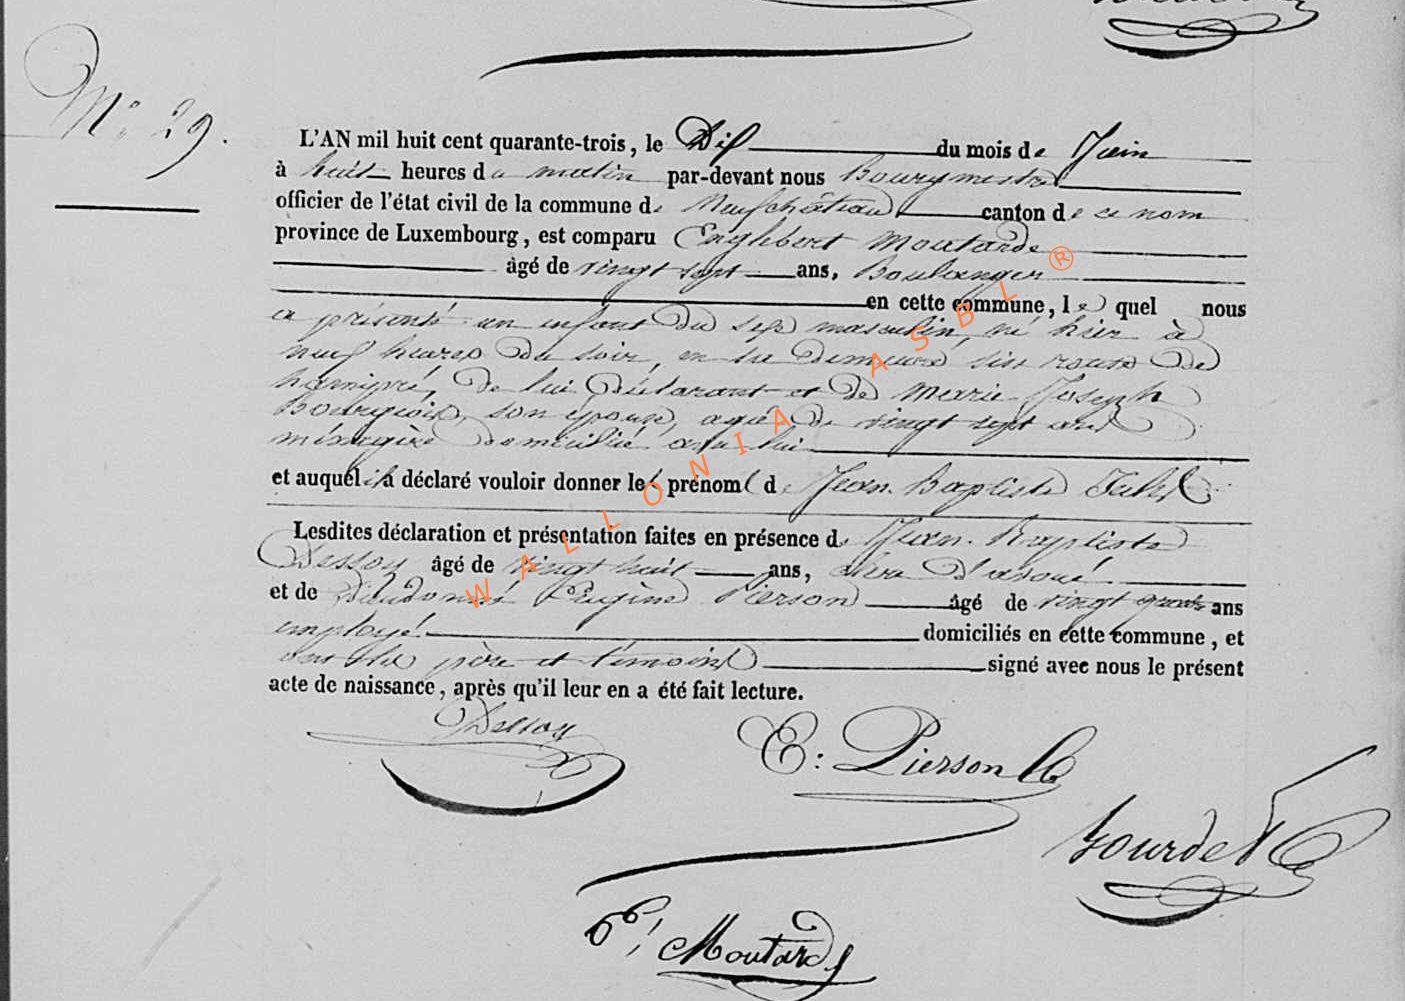 N° 29.
L'AN mil huit cent quarante-trois, le Dix du mois de Juin
à huit heures du matin par-devant nous Bourgmestre
officier de l'état civil de la commune de Neufchâteau canton de ce nom
province de Luxembourg, est comparu Englebert Moutarde
âgé de vingt sept ans, Boulanger
en cette commune, le quel nous
a présenté un enfant du sexe masculin, né hier à
neuf heures du soir, en sa demeure, sise route de
hamipré, de lui déclarant et de Marie Joseph
Bourgeois, son épouse, agée de vingt sept ans
ménagère domiciliée avec lui
et auquel il a déclaré vouloir donner les prénoms de Jean Baptiste
Lesdites déclaration et présentation faites en présence de Jean Baptiste
Dessoy âgé de vingt huit ans, d'avoué
et de Dieudonné Eugène Pierson âgé de vingt quatre ans
employé domiciliés en cette commune, et
ont les père et témoins signé avec nous le présent
acte de naissance, après qu'il leur en a été fait lecture.
Dessoy
E: Pierson
Bourdet
E, Moutarde
WALLONIA ASBL ®